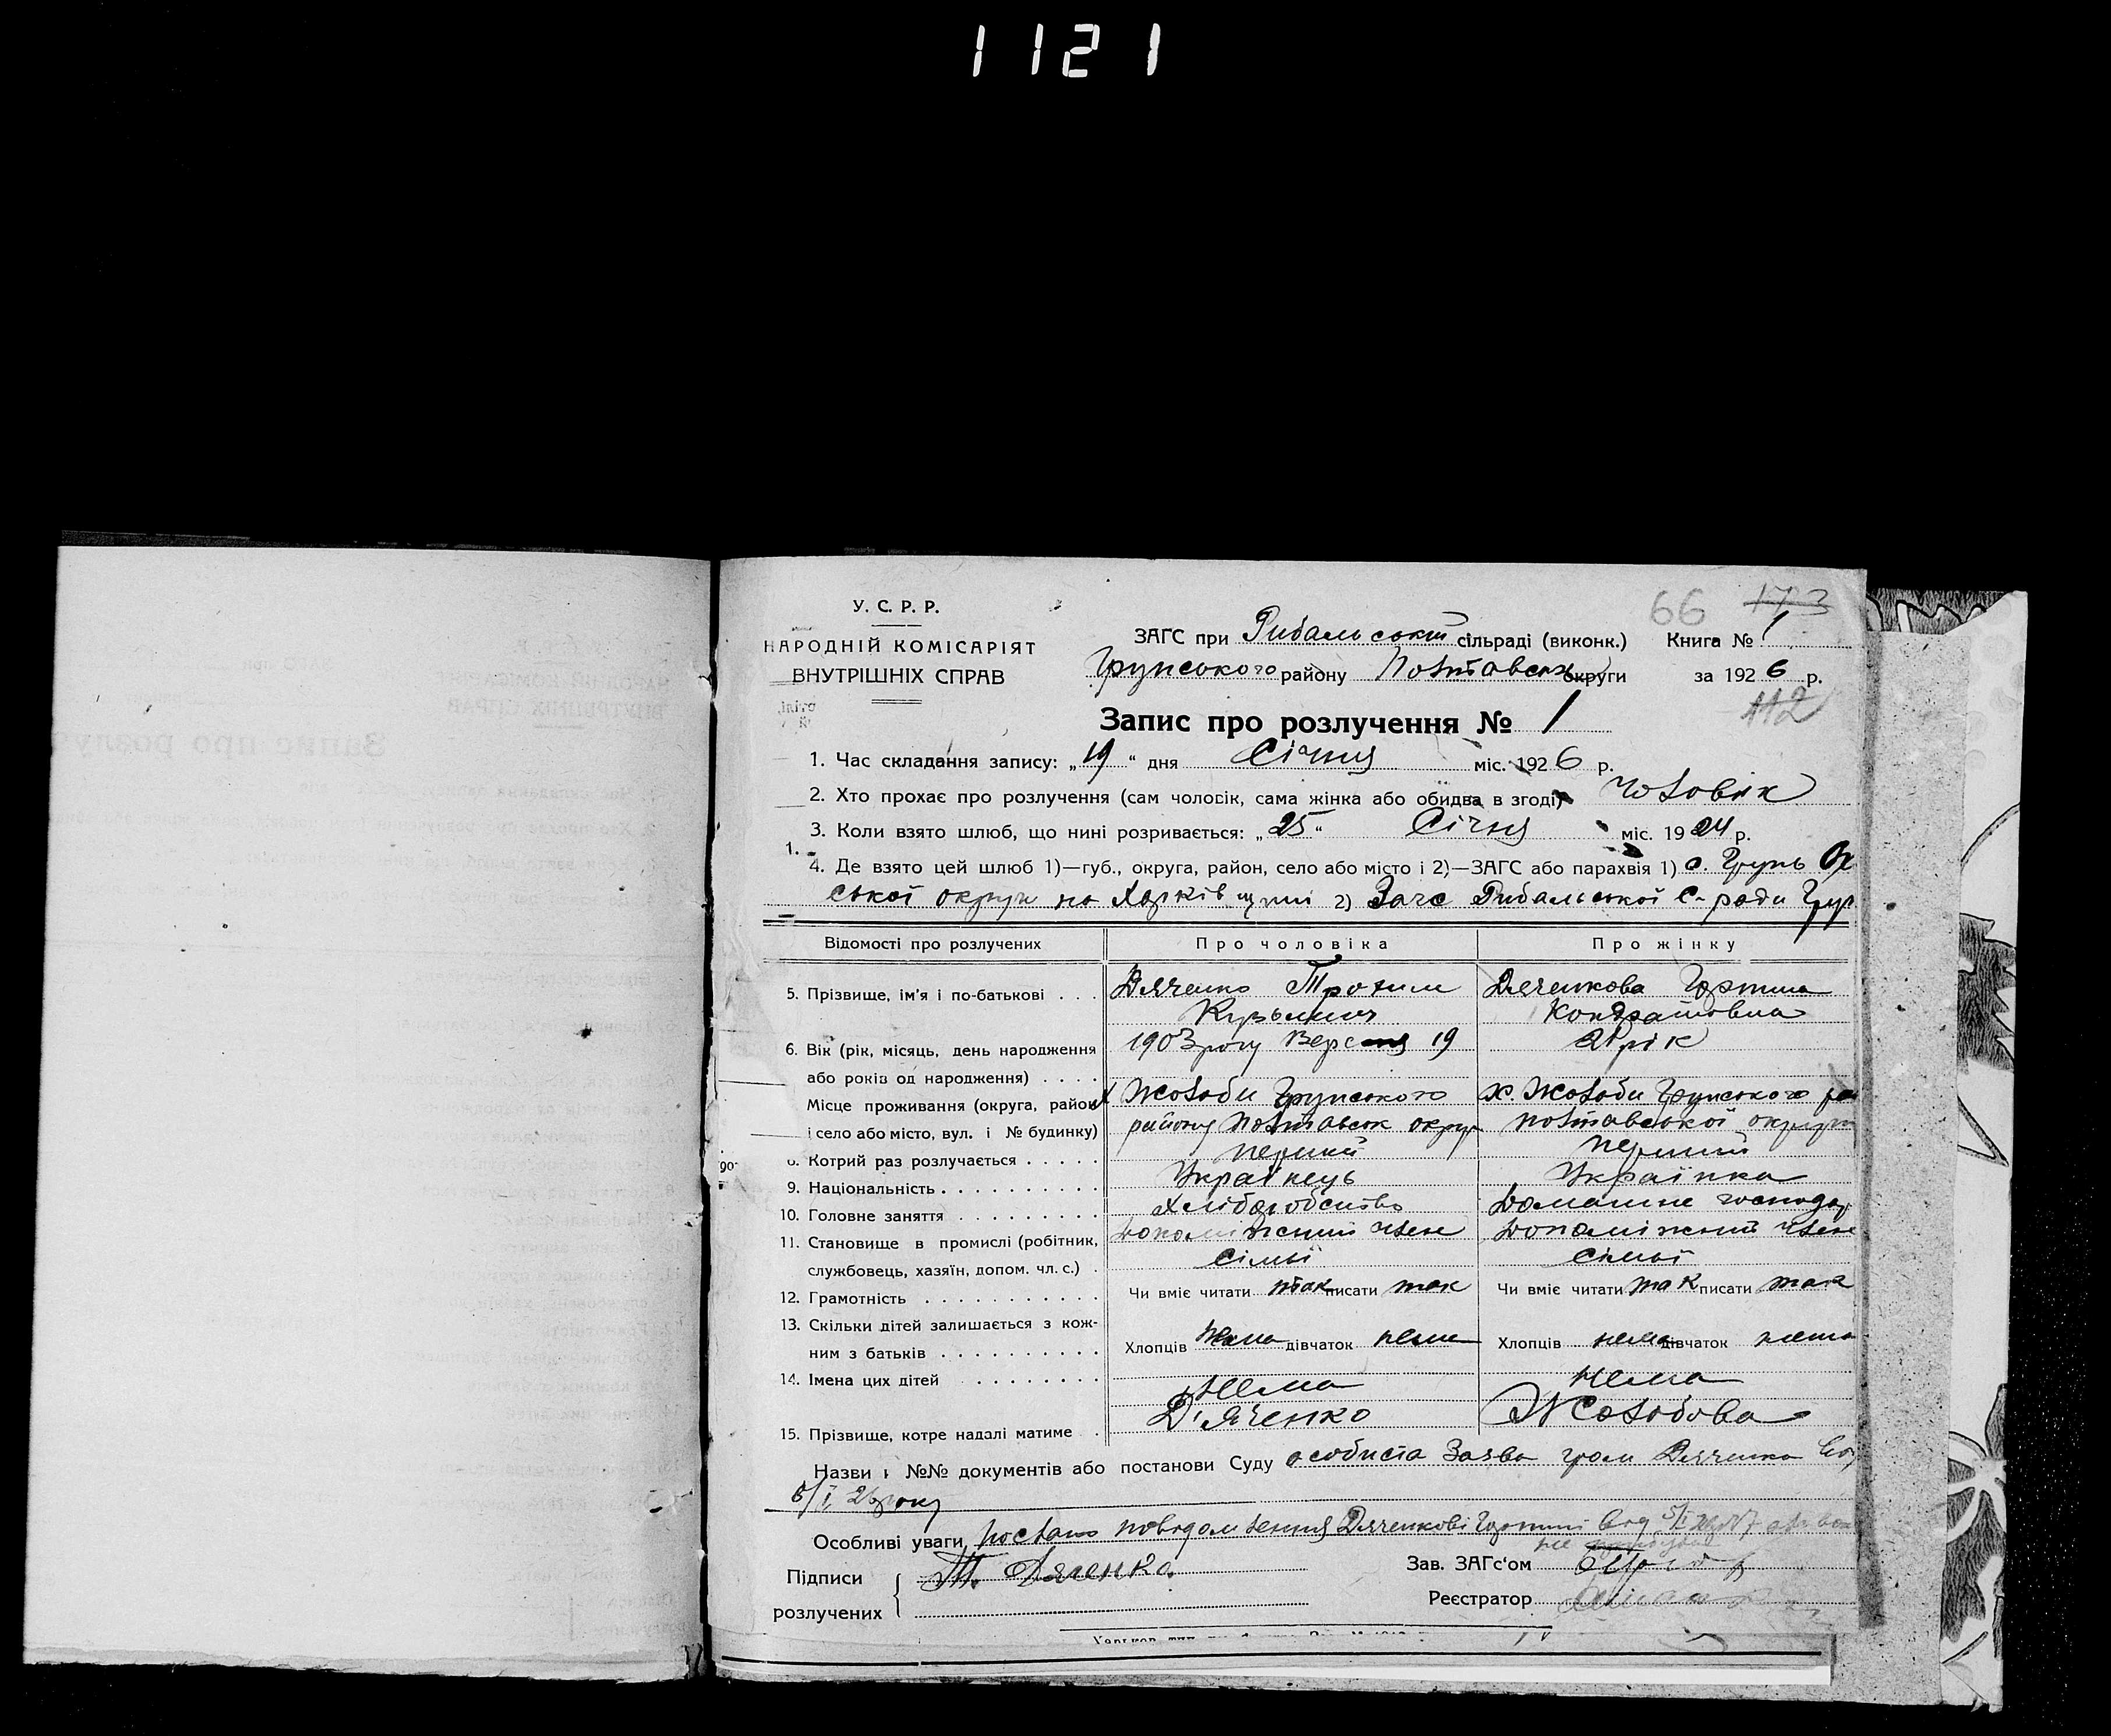 1121
66 173
У. С. Р. Р.
НАРОДНІЙ КОМІСАРІЯТ
ВНУТРІШНІХ СПРАВ
ЗАГС при Рибальській сільраді (виконк.) Книга № 1
Грунського району Полтавськ округи за 1926 р.
112
Запис про розлучення № 1
1. Час складання запису: „19“ дня Січня міс. 1926 р.
2. Хто прохає про розлучення (сам чоловік, сама жінка або обидва в згоді) Чоловік
3. Коли взято шлюб, що нині розривається: „25“ Січня міс. 1924 р.
1.
4. Де взято цей шлюб 1)—губ., округа, район, село або місто і 2)—ЗАГС або парахвія 1) с. Грунь Ох
ської округи на Харківщині 2) Загс Рибальської С-ради Грун
Відомості про розлучених Про чоловіка Про жінку
5. Прізвище, ім'я і по-батькові . . . Дяченко Трохим Дяченкова Горпина
Кузьмич Кондратовна
6. Вік (рік, місяць, день народження 1903 року Версня 19 21 рік
або років од народження) . . . .
Місце проживання (округа, район х Жолоби Грунського х. Жолоби Грунського рай
і село або місто, вул. і № будинку) району Полтавськ округ полтавської округи
8. Котрий раз розлучається . . . . . перший перший
9. Національність . . . . . . . . . . Українець Українка
10. Головне заняття . . . . . . . . . Хліборобство Домашнє господар
11. Становище в промислі (робітник, Допоміжний член Допоміжний член
службовець, хазяїн, допом. чл. с.) . сімьї сімьї
12. Грамотність . . . . . . . . . . . Чи вміє читати так писати так Чи вміє читати так писати так
13. Скільки дітей залишається з кож-
ним з батьків . . . . . . . . . . Хлопців нема дівчаток нема Хлопців нема дівчаток нема
14. Імена цих дітей . . . . . . . . нема нема
15. Прізвище, котре надалі матиме . Д'яченко Жолобова
Назви і №№ документів або постанови Суду особиста Заява гром Дяченка від
5/I 26 року
Особливі уваги послано повідомлення Дяченкові Горпині від 5/I
не
Підписи Т. Дяченко. Зав. ЗАГс‘ом
розлучених Реєстратор